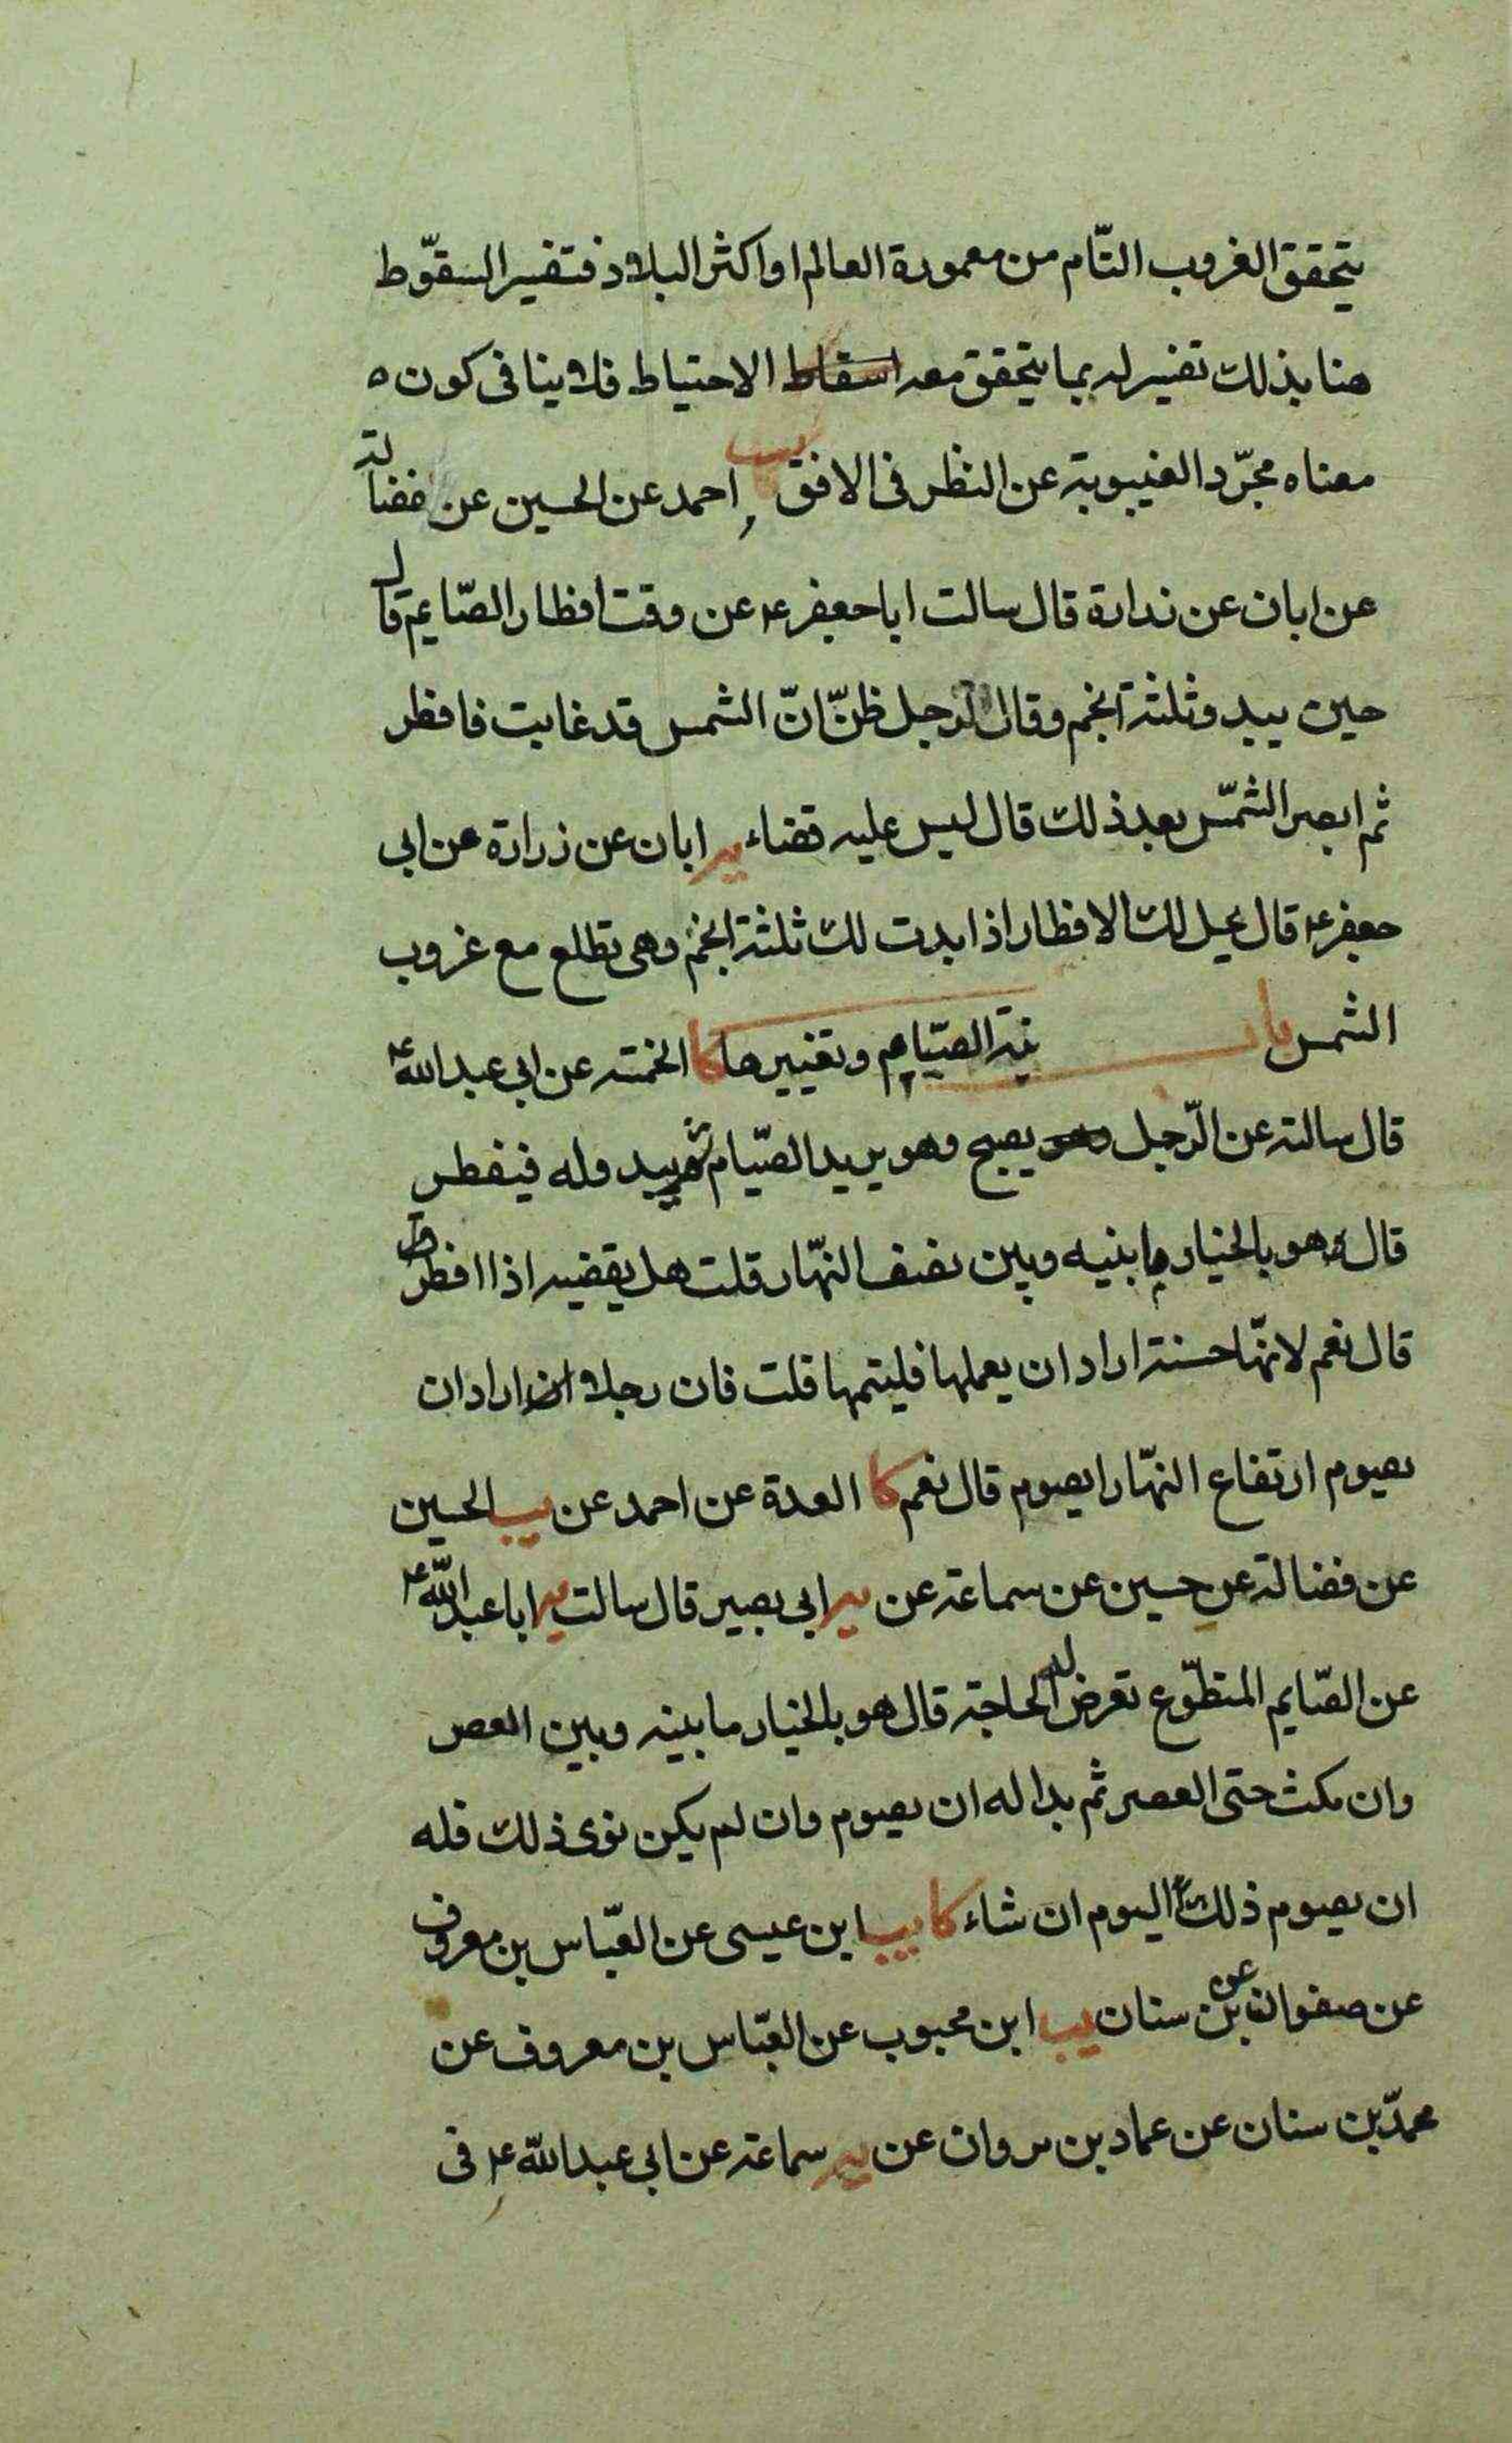 يتحقق الغروب التّام من معمورة العالم او اكثر البلاد فتفسير السقّوط
هنا بذلك تفسير له بما يتحقق معه اسقاط الاحتياط فلا ينافى كون ه
معناه مجرّد الغيبوبة عن النظر فى الافق يب احمد عن الحسين عن فضالة
عن ابان عن زرارة قال سالت ابا جعفر ع عن وقت افطار الصّايم قال
حين يبدو ثلثة انجم وقال لرجل ظنّ انّ الشمس قد غابت فافطر
ثم ابصر الشمّس بعد ذلك قال ليس عليه قضاء ير ابان عن زرارة عن ابى
جعفر ع قال يحل لك الافطار اذا بدت لك ثلثة انجم وهى تطلع مع غروب
الشمس باب نيّة الصيّام وتغييرها كا الخمسة عن ابى عبد الله ع
قال سالته عن الرّجل يصبح وهو يريد الصيّام ثم يبدوله فيفطر
قال هو بالخيار ما بنيه وبين نصف النهّار قلت هل يقضيه اذا افطر
قال نعم لانهّا حسنة اراد ان يعملها فليتمها قلت فان رجلا اراد ان
يصوم ارتفاع النهّار ايصوم قال نعم كا العدة عن احمد عن يب الحسين
عن فضالة عن حسين عن سماعة عن ير ابى بصير قال سالت ير ابا عبد الله ع
عن الصّايم المتطوّع تعرض له الحاجة قال هو بالخيار ما بينه وبين العصر
وان مكث حتى العصر ثم بدا له ان يصوم وان لم يكن نوى ذلك فله
ان يصوم ذلك اليوم ان شاء كا يب ابن عيسى عن العبّاس بن معروف
عن صفوان عن ابن سنان يب ابن محبوب عن العبّاس بن معروف عن
محمدّ بن سنان عن عمار بن مروان عن ير سماعة عن ابى عبد الله ع فى